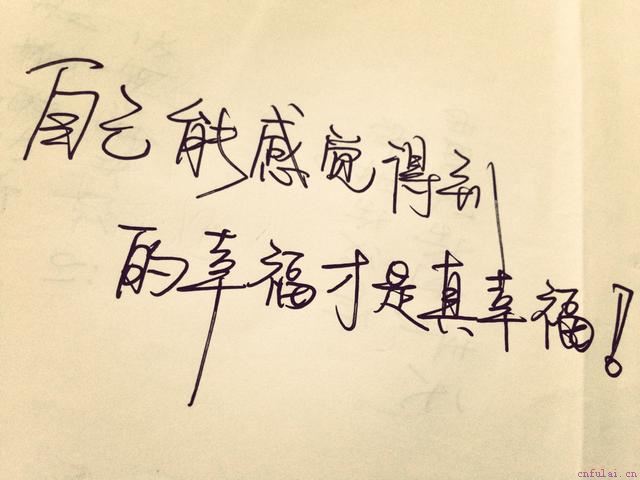 自己能感觉得到
的幸福才是真幸福！
cnfulai.cn